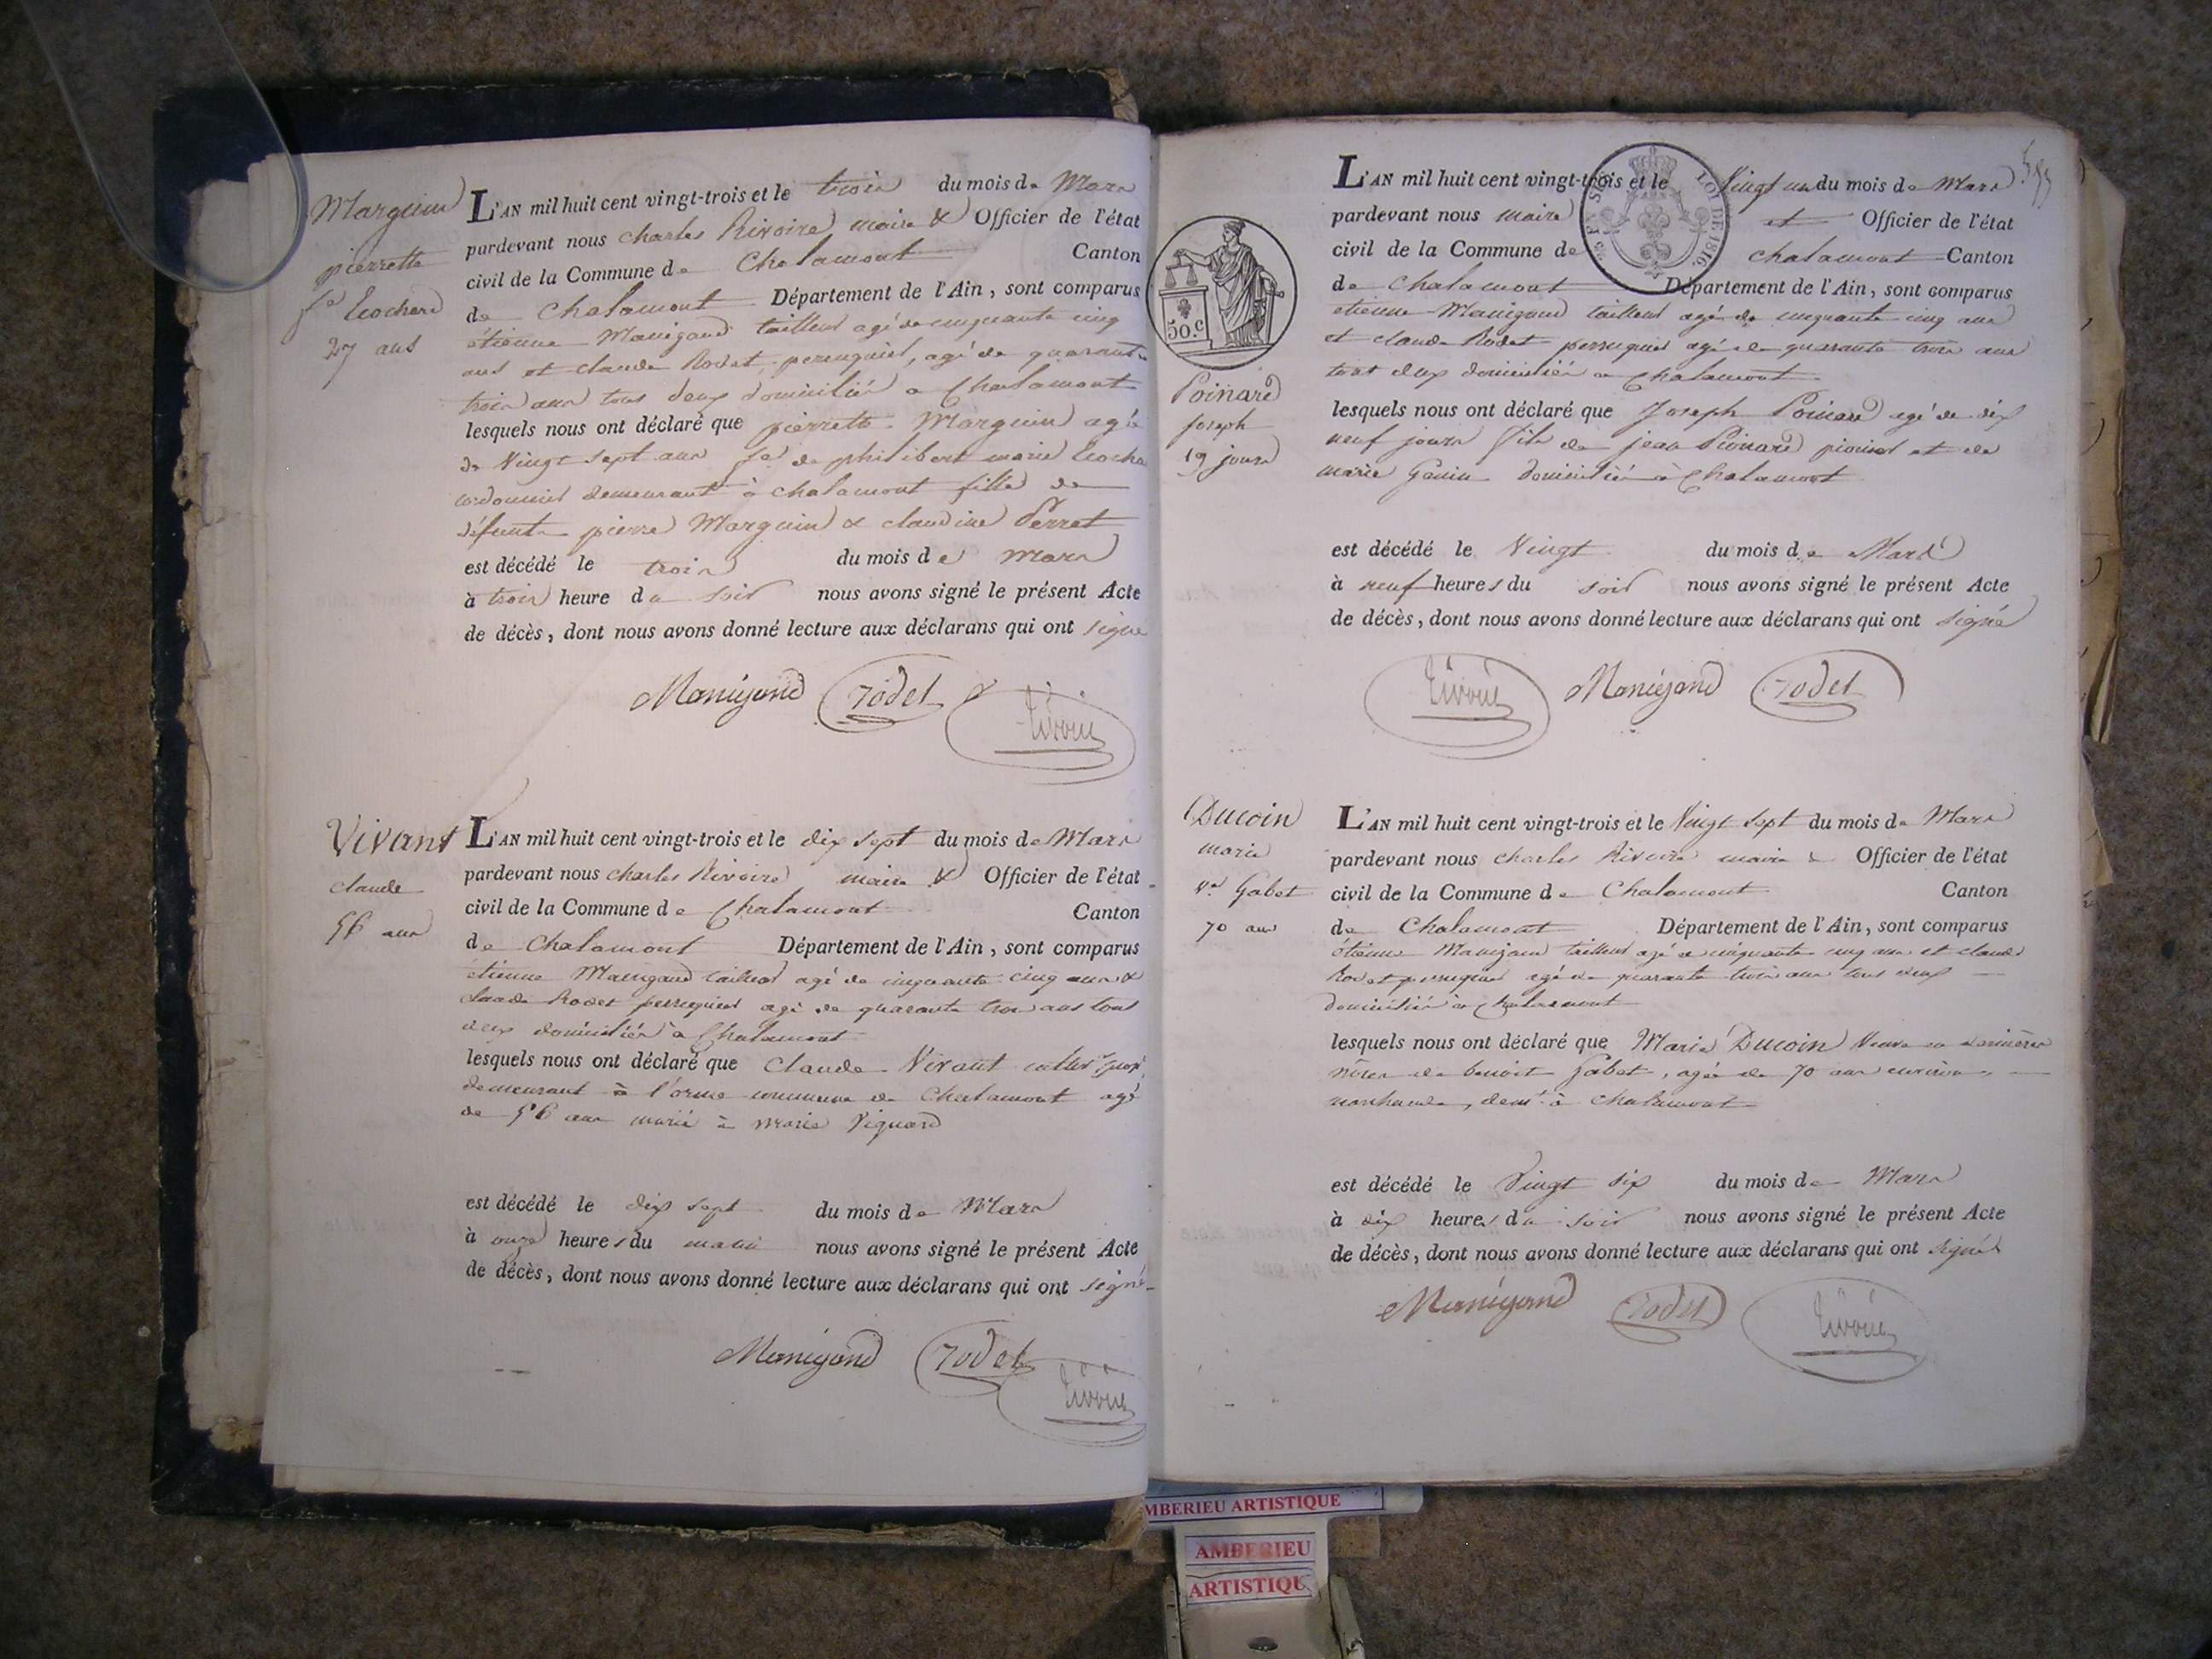 Marguin
pierrette
fe Cochard
27 ans
L'AN mil huit cent vingt-trois et le trois du mois de Mars
pardevant nous charles Rivoire maire & Officier de l'état
civil de la Commune de Chalamont Canton
de Chalamont Département de l'Ain, sont comparus
étienne Manigand tailleur agé de cinquante cinq
ans et claude Rodet, perruquier, agé de quarante
trois ans tous deux domiciliés a Chalamont
lesquels nous ont déclaré que pierrette Marguin agée
de Vingt sept ans fe de philibert marie
cordonnier demeurant à chalamont fille de
défunts pierre Marguin & claudine Perret
est décédé le trois du mois de mars
à trois heure du soir nous avons signé le présent Acte
de décès, dont nous avons donné lecture aux déclarans qui ont signé
Manigand Rodet Rivoire
Vivant
claude
56 ans
L'AN mil huit cent vingt-trois et le dix sept du mois de Mars
pardevant nous charles Rivoire maire & Officier de l'état
civil de la Commune de Chalamont Canton
de Chalamont Département de l'Ain, sont comparus
étienne Manigand tailleur agé de cinquante cinq ans &
claude Rodet perruquier agé de quarante trois ans tous
deux domiciliés à Chalamont
lesquels nous ont déclaré que Claude Vivant
demeurant à l'orme commune de Chalamont agé
de 56 ans marié à marie Piquard
est décédé le dix sept du mois de Mars
à onze heures du matin nous avons signé le présent Acte
de décès, dont nous avons donné lecture aux déclarans qui ont signé
Manigand Rodet Rivoire
LOI DE 1816.
50.c
Poinard
joseph
19 jours
L'AN mil huit cent vingt-trois et le Vingt un du mois de Mars
pardevant nous maire et Officier de l'état
civil de la Commune de chalamont Canton
de Chalamont Département de l'Ain, sont comparus
etienne Manigand tailleur agé de cinquante cinq ans
et claude Rodet perruquier agé de quarante trois ans
tout deux domiciliés a Chalamont
lesquels nous ont déclaré que Joseph Poinard agé de dix
neuf jours fils de jean Poinard et de
marie Genin domiciliés à Chalamont
est décédé le Vingt du mois de Mars
à neuf heures du soir nous avons signé le présent Acte
de décès, dont nous avons donné lecture aux déclarans qui ont signé
Rivoire Manigand Rodet
Ducoin
marie
Ve Gabet
70 ans
L'AN mil huit cent vingt-trois et le Vingt sept du mois de Mars
pardevant nous charles Rivoire maire & Officier de l'état
civil de la Commune de Chalamont Canton
de Chalamont Département de l'Ain, sont comparus
étienne Manigand tailleur agé de cinquante cinq ans et claude
Rodet perruquier agé de quarante trois ans tous deux
domiciliés à Chalamont
lesquels nous ont déclaré que Marie Ducoin Veuve en dernières
nôces de benoit Gabet, agée de 70 ans environ
marchande, demt à Chalamont
est décédé le Vingt six du mois de Mars
à dix heures du soir nous avons signé le présent Acte
de décès, dont nous avons donné lecture aux déclarans qui ont signés
Manigand Rodet Rivoire
MBERIEU ARTISTIQUE
AMBERIEU
ARTISTIQU